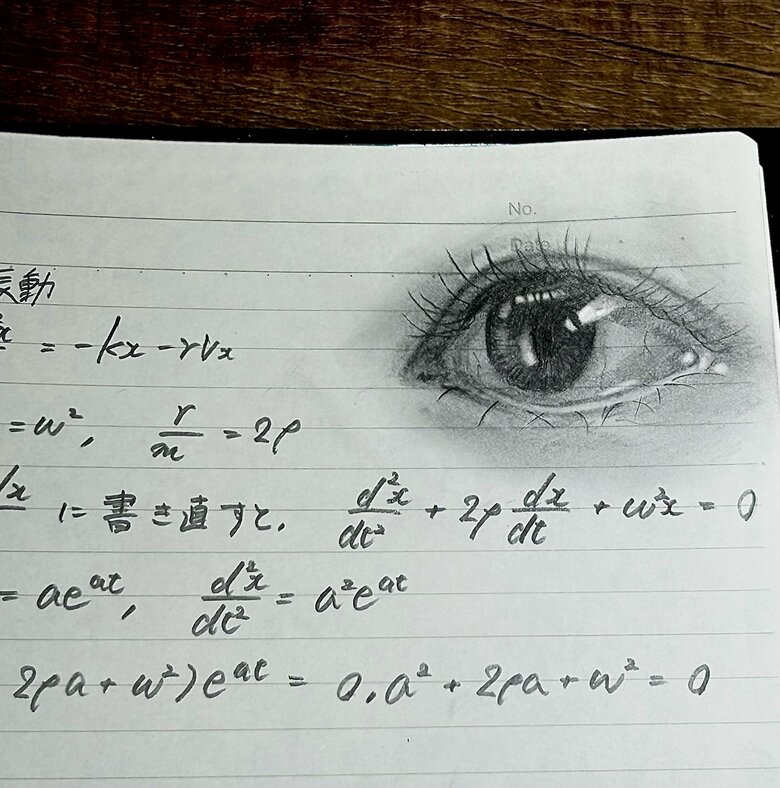 No.
Date
振動
= -kx - rVx
= ω², r/m = 2ρ
dx に書き直すと, d²x/dt² + 2ρ dx/dt + ω²x = 0
= ae^at, d²x/dt² = a²e^at
2ρa + ω²)e^at = 0, a² + 2ρa + ω² = 0